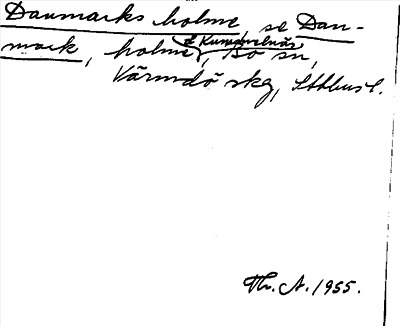 Danmarks holme se Dan-
mark, holme, Bo sn,
Värmdö skg, Sthlms l.
Th. A. 1955.